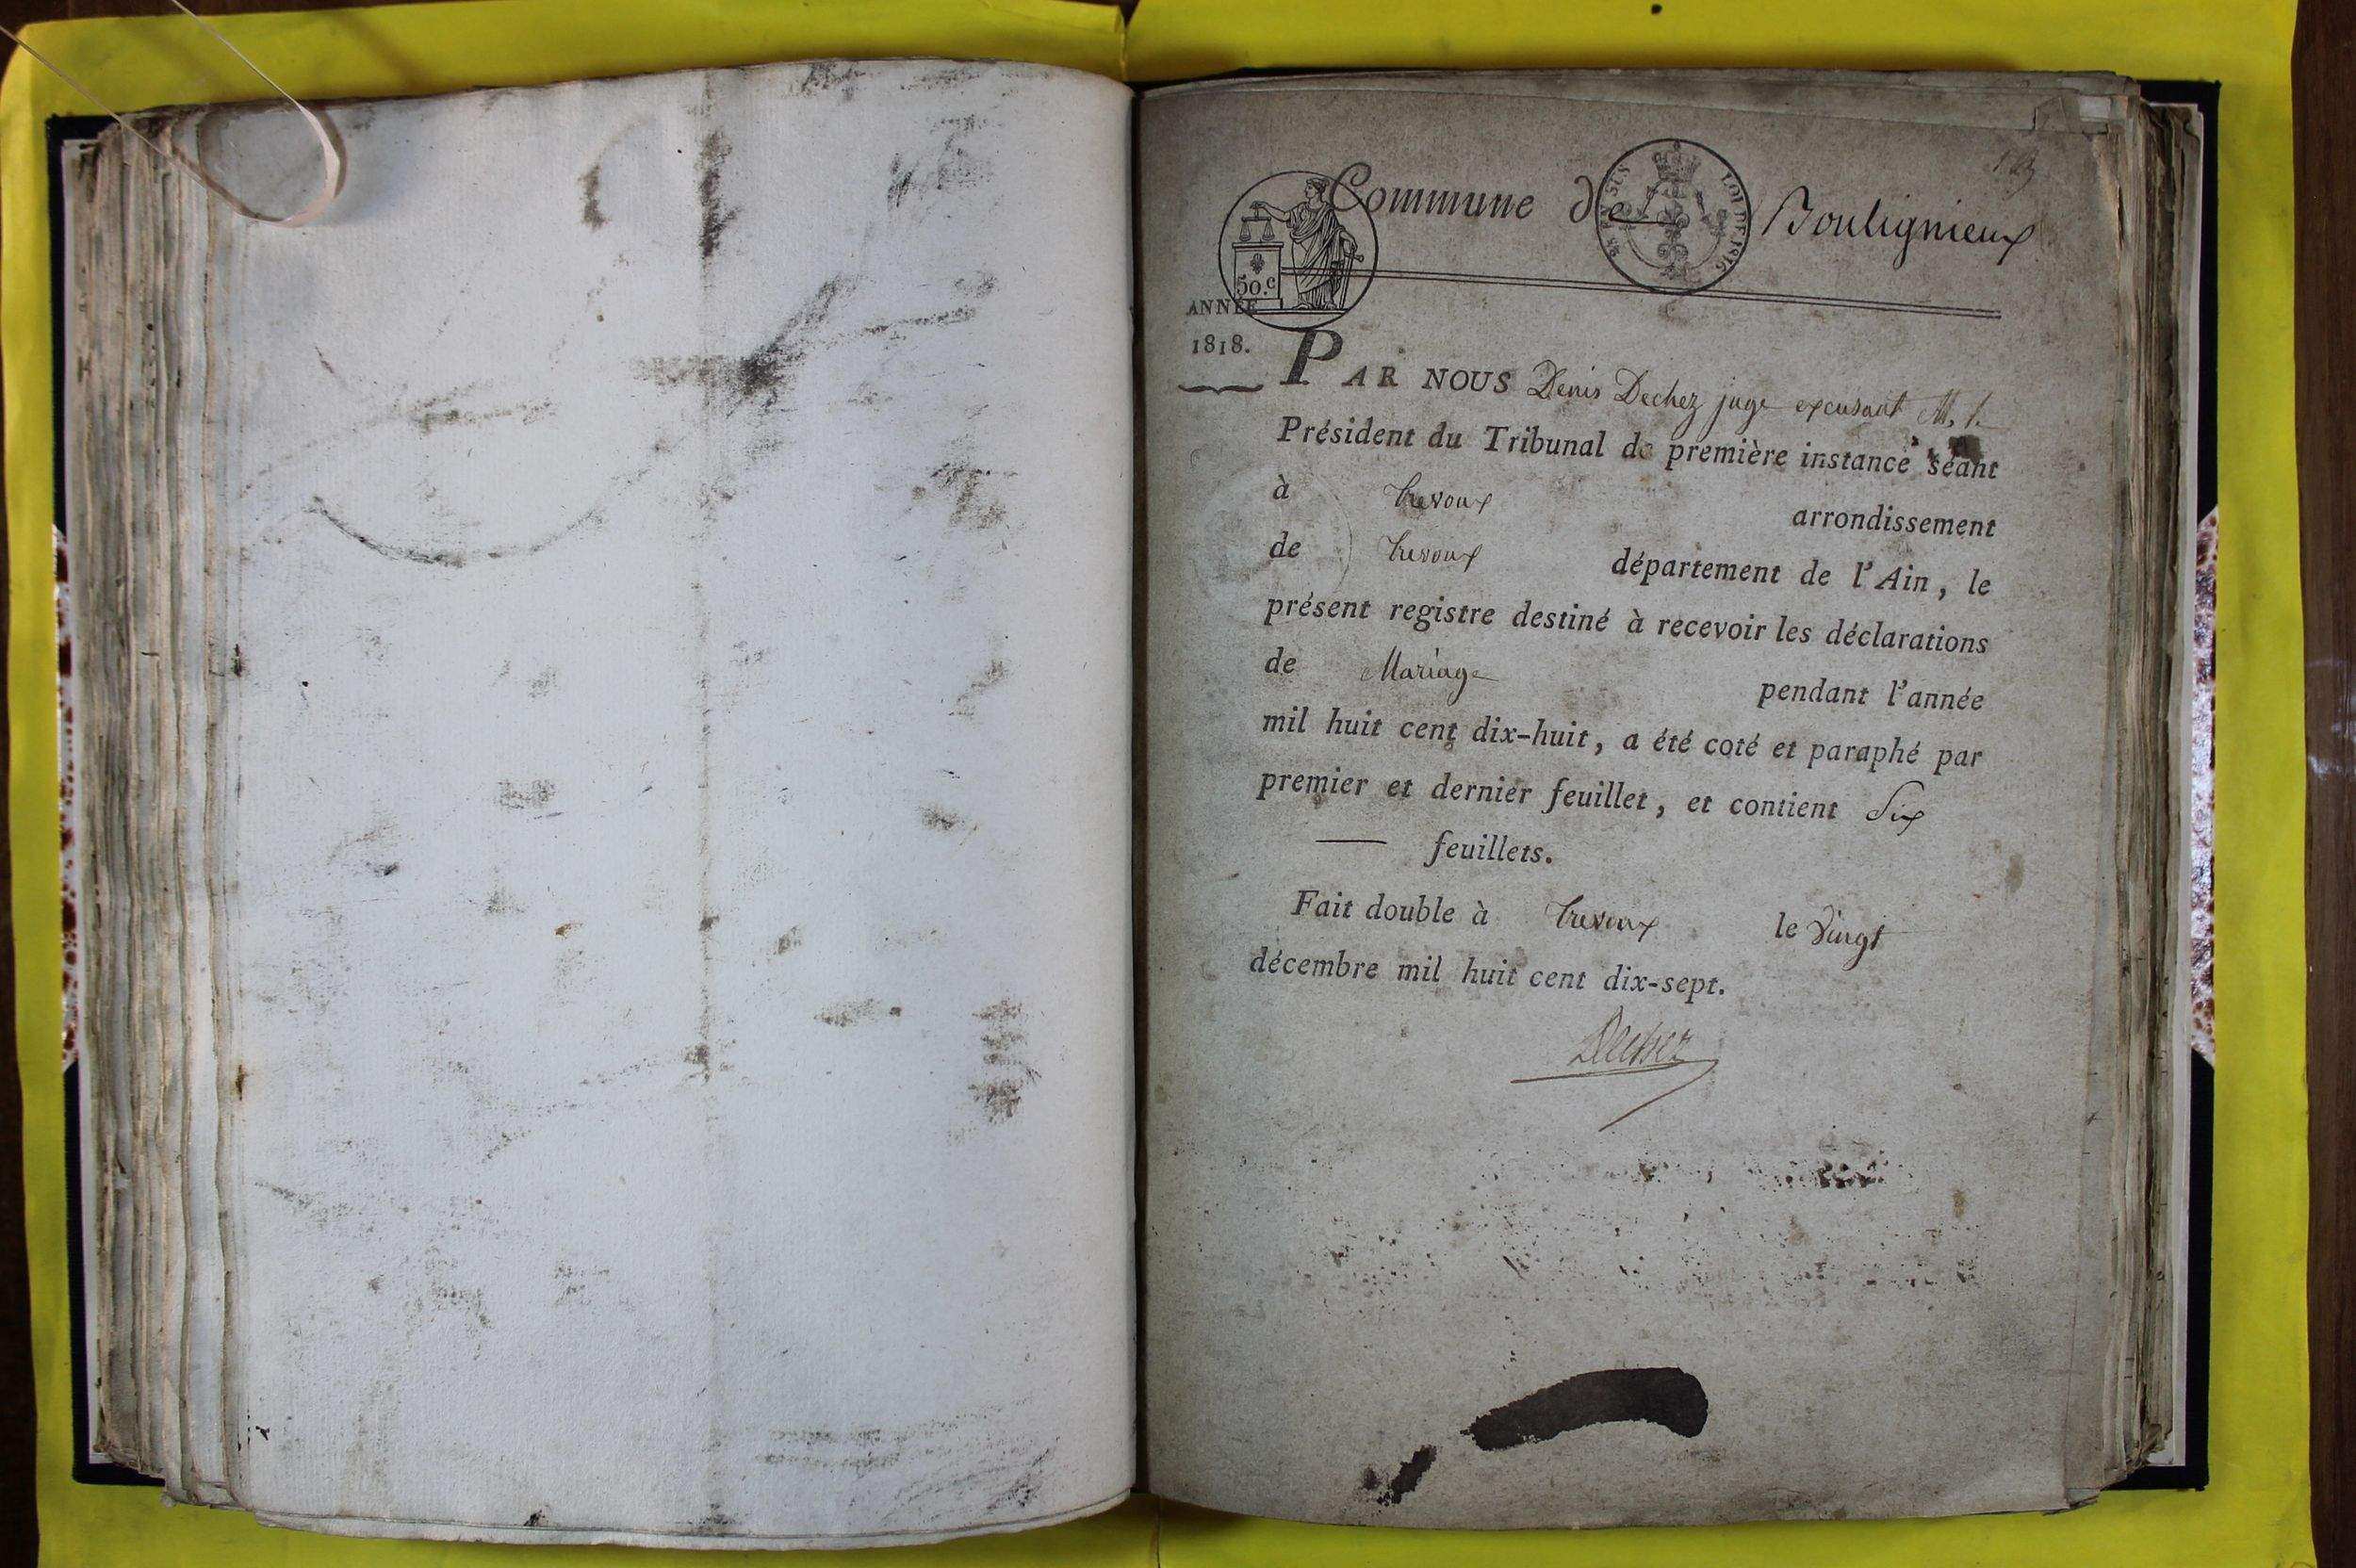 Commune de Boulignieux
50.c
LOI DE 1816
ANNÉE
1818.
PAR NOUS Denis Dechez juge excusant M. l.
Président du Tribunal de première instance séant
à Trevoux arrondissement
de Trevoux département de l'Ain, le
présent registre destiné à recevoir les déclarations
de Mariage pendant l'année
mil huit cent dix-huit, a été coté et paraphé par
premier et dernier feuillet, et contient Six
— feuillets.
Fait double à Trevoux le Vingt
décembre mil huit cent dix-sept.
Dechez